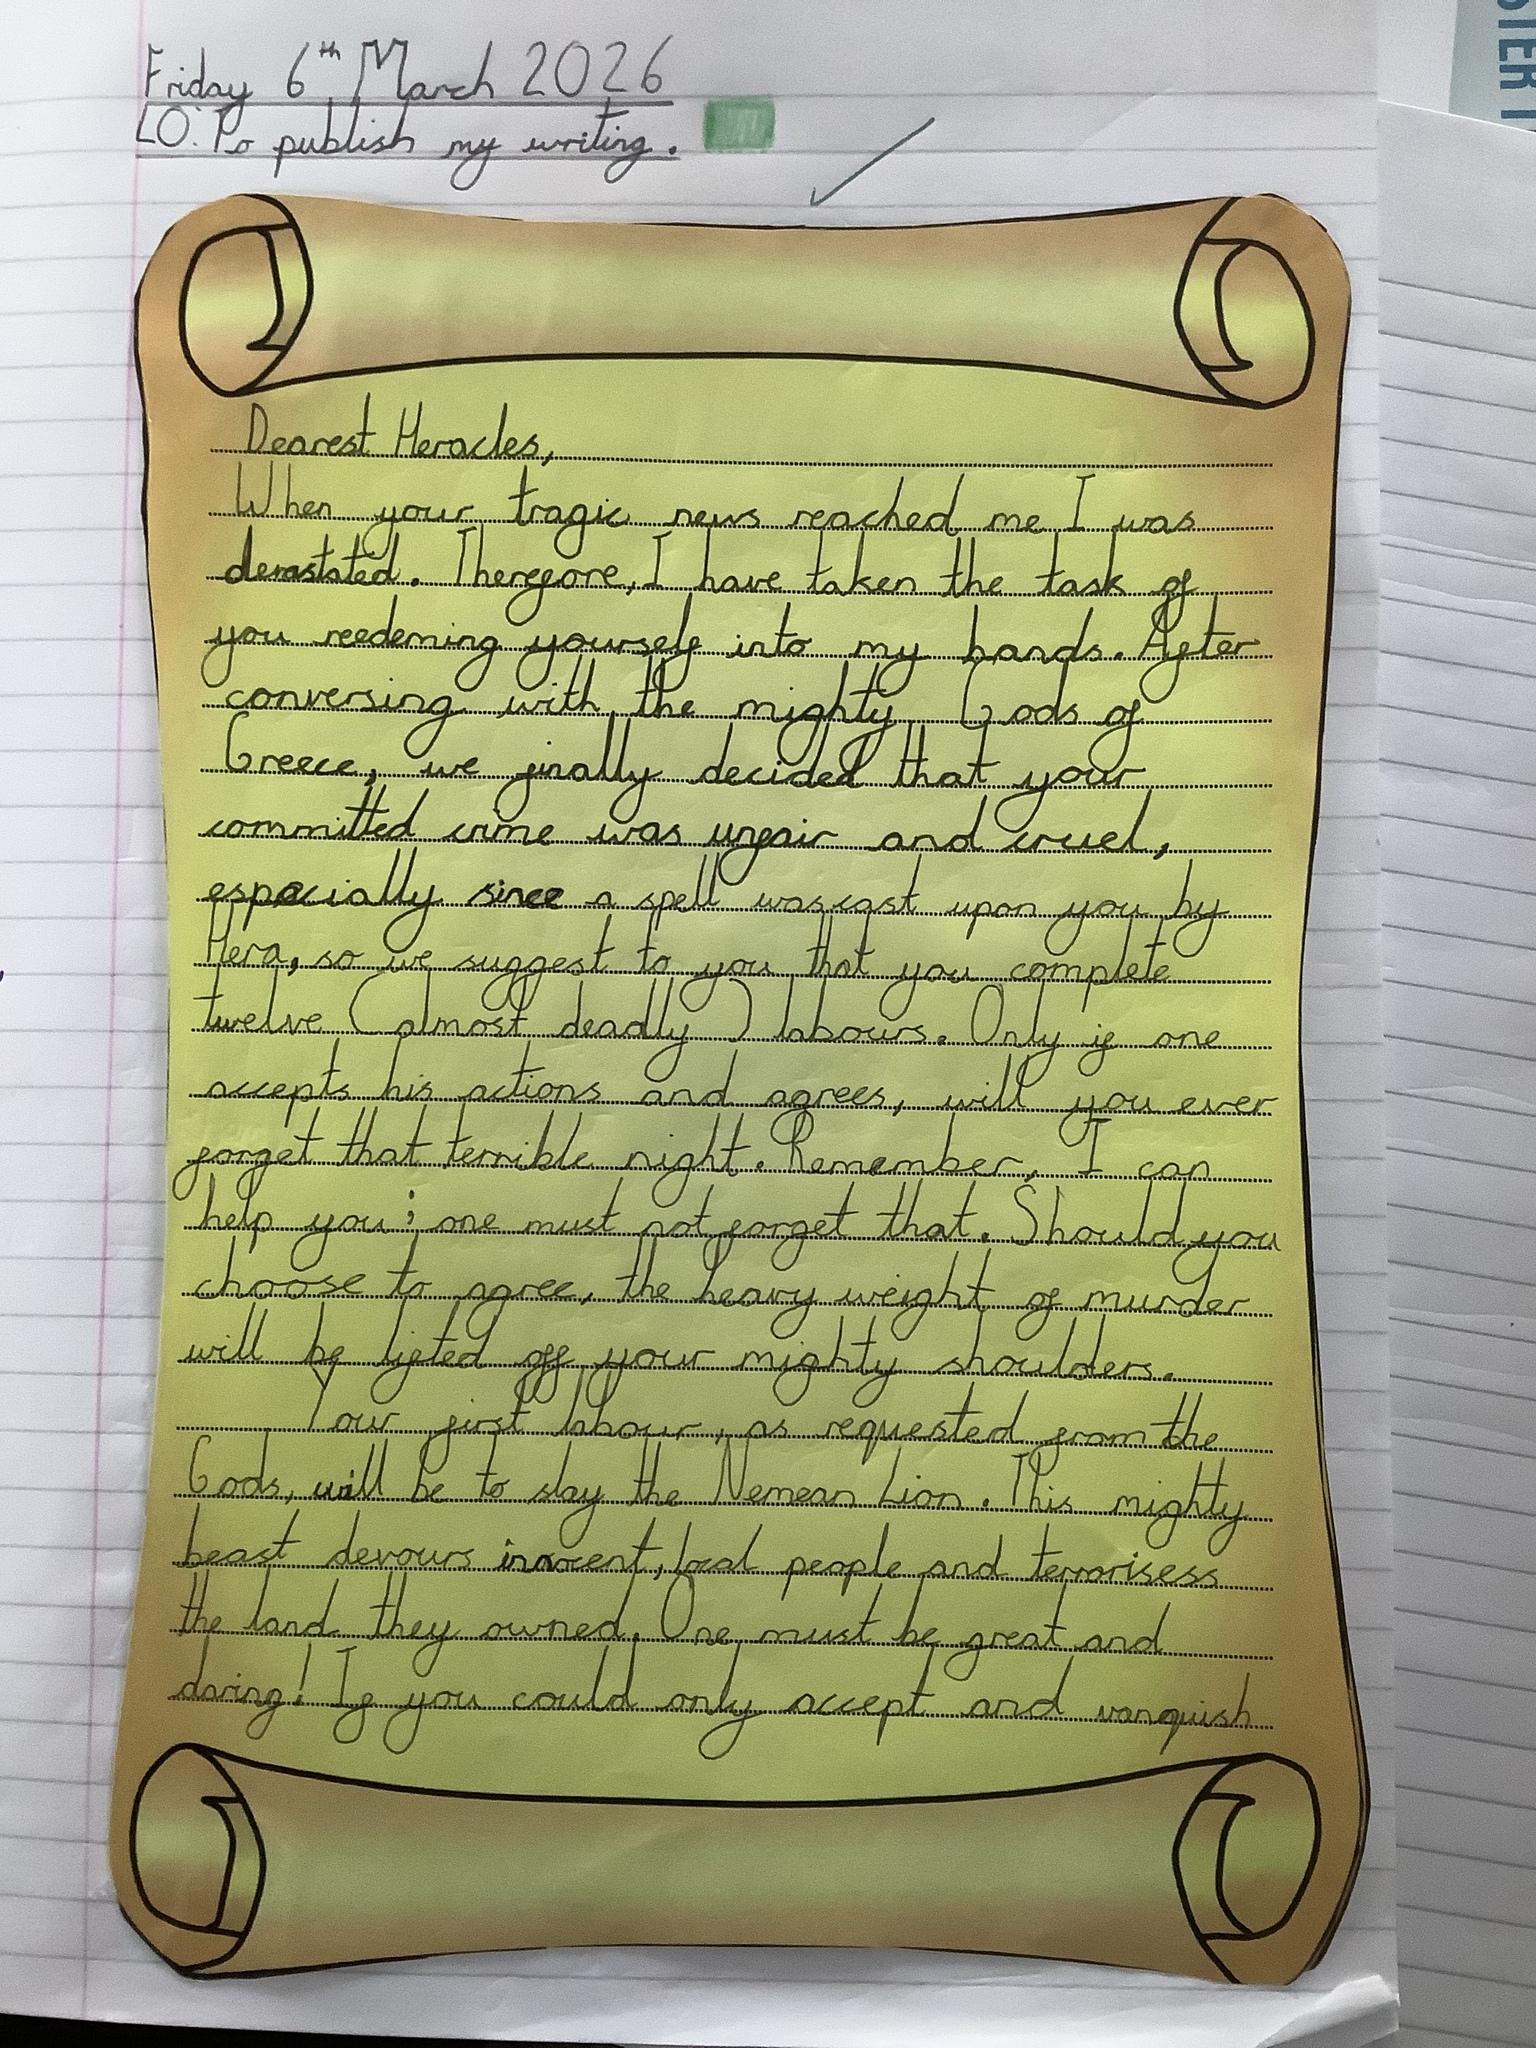 Friday 6th March 2026
LO: To publish my writing.
Dearest Heracles,
When your tragic news reached me I was
devastated. Therefore, I have taken the task of
you reedeming yourself into my hands. After
conversing with the mighty Gods of
Greece, we finally decided that your
committed crime was unfair and cruel,
especially since a spell was cast upon you by
Hera, so we suggest to you that you complete
twelve (almost deadly) labours. Only if one
accepts his actions and agrees, will you ever
forget that terrible night. Remember, I can
help you; one must not forget that. Should you
choose to agree, the heavy weight of murder
will be lifted off your mighty shoulders.
Your first labour, as requested from the
Gods, will be to slay the Nemean Lion. This mighty
beast devours innocent, local people and terrorisess
the land they owned. One must be great and
daring! If you could only accept and vanquish
STER